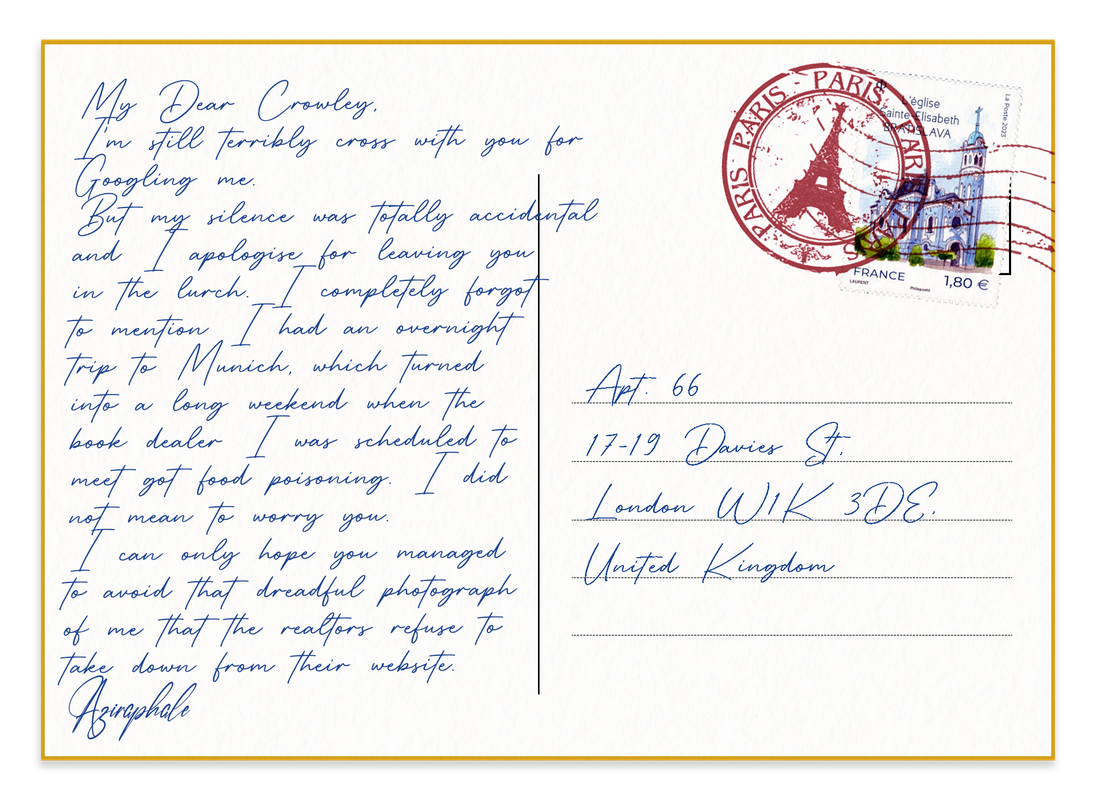 My Dear Crowley,
I'm still terribly cross with you for
Googling me.
But my silence was totally accidental
and I apologise for leaving you
in the lurch. I completely forgot
to mention I had an overnight
trip to Munich, which turned
into a long weekend when the
book dealer I was scheduled to
meet got food poisoning. I did
not mean to worry you.
I can only hope you managed
to avoid that dreadful photograph
of me that the realtors refuse to
take down from their website.
Aziraphale
PARIS - PARIS - PARIS - PARIS
L'église
Sainte-Élisabeth
BRATISLAVA
La Poste 2023
FRANCE
1,80 €
LAURENT
Philaposte
Apt. 66
17-19 Davies St.
London W1K 3DE.
United Kingdom